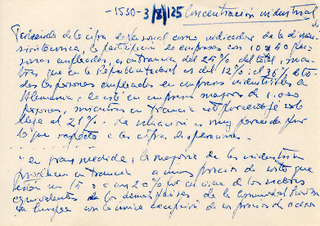 -1530-3/8/125 Concentración industrial
de la cifra de personal como indicador de la dimen-
sión técnica, la participación empresas con 10 a 40 per-
sonas empleadas, es en Francia del 25% del total, mien-
tras que en la República federal es del 12%: el 36% de to-
das las personas empleadas en empresas industriales de
Alemania, lo está en empresas mayores de 1.000
personas, mientras en Francia este porcentaje solo
llega al 21%. La situación es muy parecida por
lo que respecta a las cifras de operaciones.
en gran medida, la mayoría de las industrias
en Francia a unos precios de coste que
un 15 a un 20% por encima de los costes
equivalentes de los demás países de la Comunidad
de Europa con la única excepción de los precios de acero